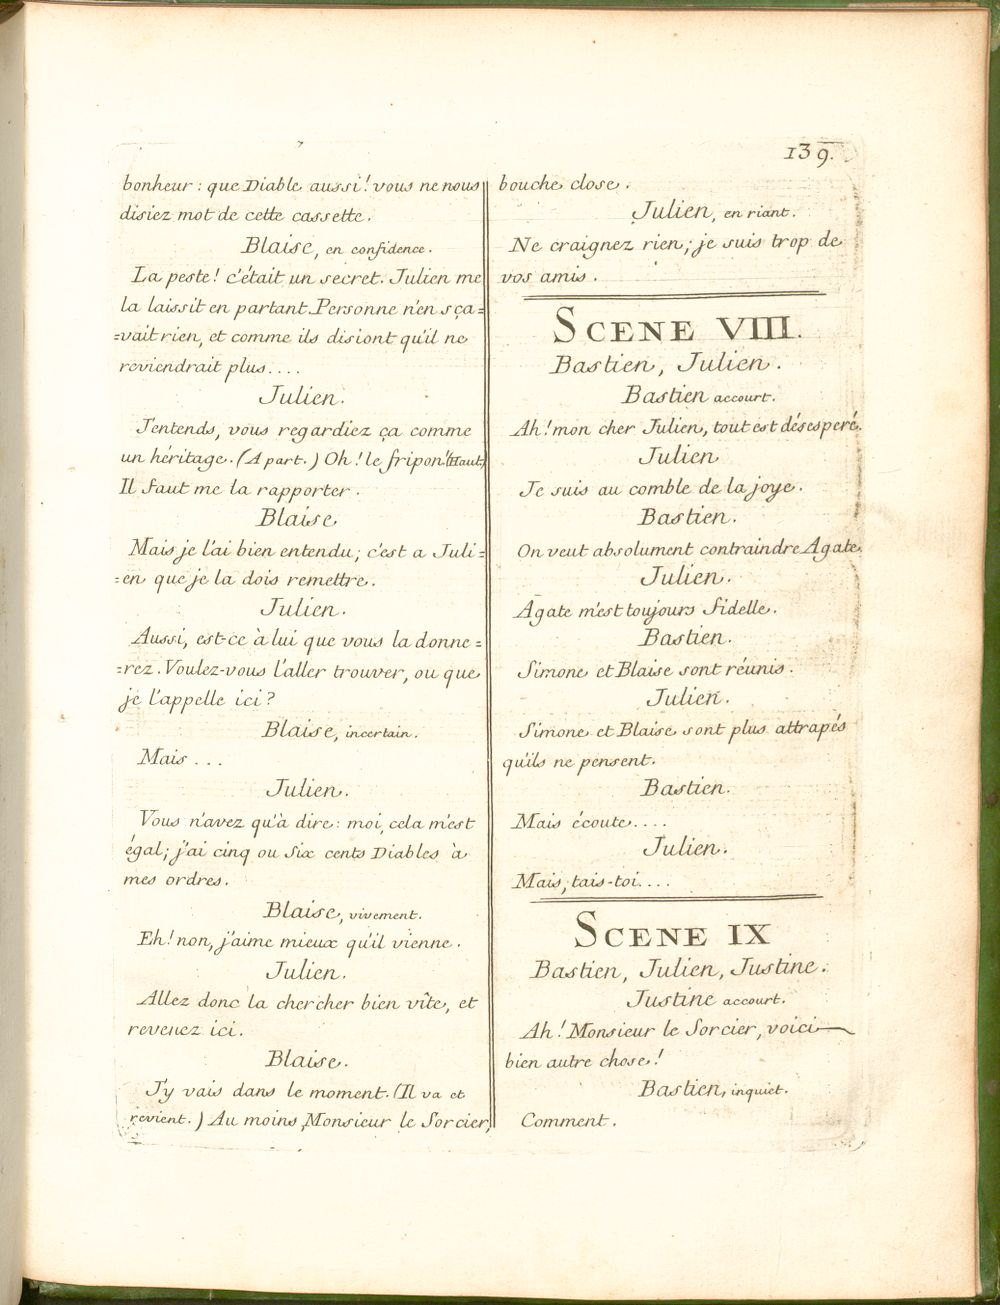 139.
bonheur : que Diable aussi ! vous ne nous
disiez mot de cette cassette.
Blaise, en confidence.
La peste ! c'était un secret. Julien me
la laissit en partant. Personne n'en sça=
=vait rien, et comme ils disiont qu'il ne
reviendrait plus....
Julien.
J'entends, vous regardiez ça comme
un héritage. (A part.) Oh ! le fripon ! (Haut)
Il faut me la rapporter.
Blaise
Mais je l'ai bien entendu; c'est a Juli=
=en que je la dois remettre.
Julien.
Aussi, est-ce à lui que vous la donne=
=rez. Voulez-vous l'aller trouver, ou que
je l'appelle ici ?
Blaise, incertain.
Mais ...
Julien.
Vous n'avez qu'à dire : moi, cela m'est
égal; j'ai cinq ou six cents Diables à
mes ordres.
Blaise, vivement.
Eh ! non, j'aime mieux qu'il vienne.
Julien.
Allez donc la chercher bien vîte, et
revenez ici.
Blaise.
J'y vais dans le moment. (Il va et
revient.) Au moins, Monsieur le Sorcier,
bouche close.
Julien, en riant.
Ne craignez rien; je suis trop de
vos amis.
SCENE VIII.
Bastien, Julien.
Bastien accourt.
Ah ! mon cher Julien, tout est désesperé.
Julien
Je suis au comble de la joye.
Bastien.
On veut absolument contraindre Agate.
Julien.
Agate m'est toujours fidelle.
Bastien.
Simone et Blaise sont réunis.
Julien.
Simone et Blaise sont plus attrapés
qu'ils ne pensent.
Bastien.
Mais écoute....
Julien.
Mais, tais-toi....
SCENE IX
Bastien, Julien, Justine.
Justine accourt.
Ah ! Monsieur le Sorcier, voici
bien autre chose !
Bastien, inquiet.
Comment.